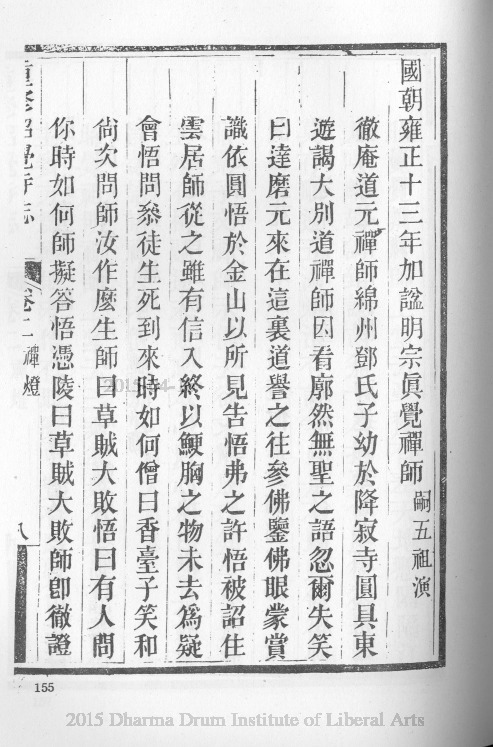 國朝雍正十三年加諡明宗眞覺禪師嗣五祖演
徹庵道元禪師綿州鄧氏子幼於降寂寺圓具東
遊謁大别道禪師因看廓然無聖之語忽爾失笑
曰達磨元來在這裏道譽之往參佛鑒佛眼蒙賞
識依圓悟於金山以所見告悟弗之許悟被詔住
雲居師從之雖有信入終以鯁胸之物未去爲疑
會悟問叅徒生死到來時如何僧曰香臺子笑和
尙次問師汝作麽生師曰草賊大敗悟曰有人問
你時如何師擬答悟憑陵曰草賊大敗師卽徹證
重修昭覺寺志 卷二 禪燈 八
155
2015 Dharma Drum Institute of Liberal Arts